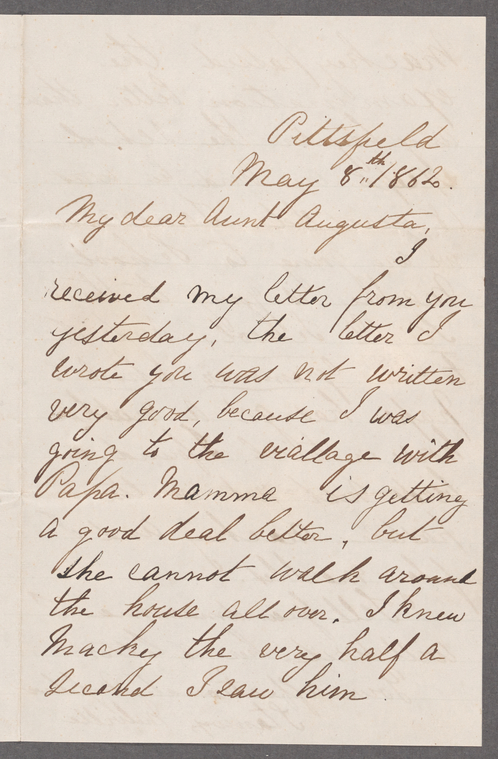 Pittsfield
May 8th 1862.
My dear Aunt Augusta,
I
received my letter from you
yesterday, the letter I
wrote you was not written
very good, because I was
going to the viallage with
Papa. Mamma is getting
a good deal better, but
she cannot walk around
the house all over. I knew
Macky the very half a
second I saw him.